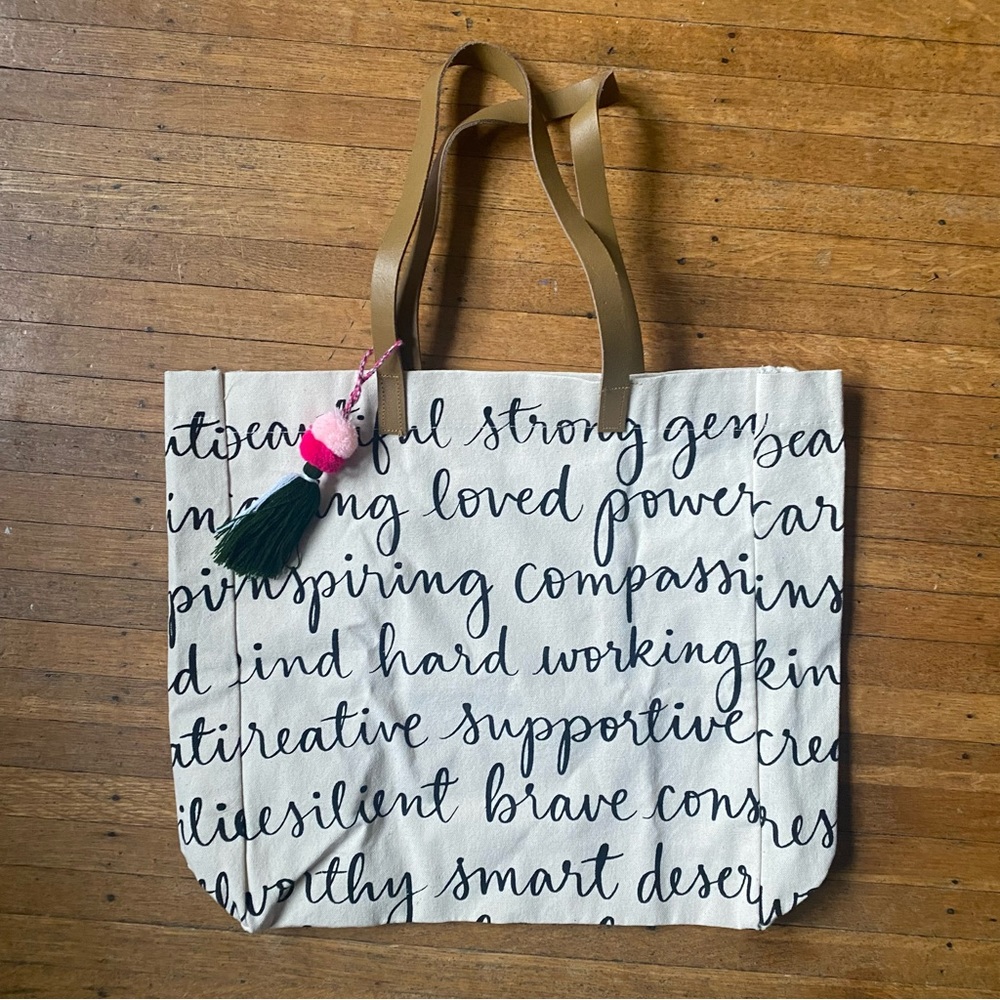 uti beautiful strong gen bea
in ing loved power car
pi inspiring compassi ins
d kind hard working kin
ati creative supportive crea
ilie resilient brave cons res
worthy smart deser w